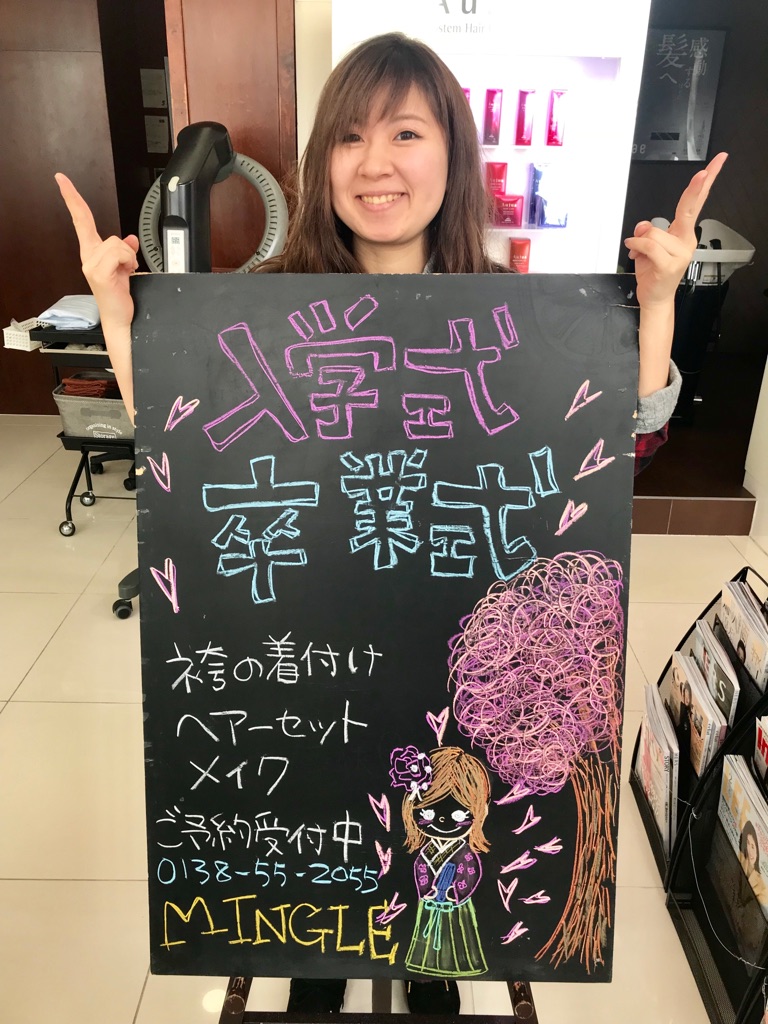 入学式
卒業式
袴の着付け
ヘアーセット
メイク
ご予約受付中
0138-55-2055
MINGLE
髪へ